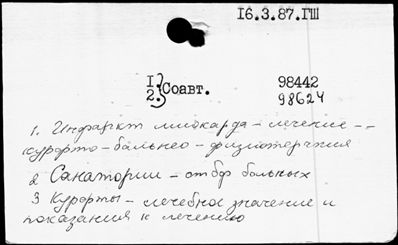 16.3.87.ГШ
1.
2.} Соавт.
98442
98624
1. Инфаркт миокарда - лечение -
курорто - бальнео - физиотерапия
2 Санатории - отбор больных
3 Курорты - лечебное значение и
показания к лечению